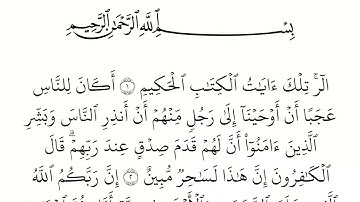 بِسْمِ ٱللَّهِ ٱلرَّحْمَٰنِ ٱلرَّحِيمِ
الٓر ۚ تِلْكَ ءَايَٰتُ ٱلْكِتَٰبِ ٱلْحَكِيمِ ١ أَكَانَ لِلنَّاسِ
عَجَبًا أَنْ أَوْحَيْنَآ إِلَىٰ رَجُلٍ مِّنْهُمْ أَنْ أَنذِرِ ٱلنَّاسَ وَبَشِّرِ
ٱلَّذِينَ ءَامَنُوٓا۟ أَنَّ لَهُمْ قَدَمَ صِدْقٍ عِندَ رَبِّهِمْ ۗ قَالَ
ٱلْكَٰفِرُونَ إِنَّ هَٰذَا لَسَٰحِرٌ مُّبِينٌ ٢ إِنَّ رَبَّكُمُ ٱللَّهُ